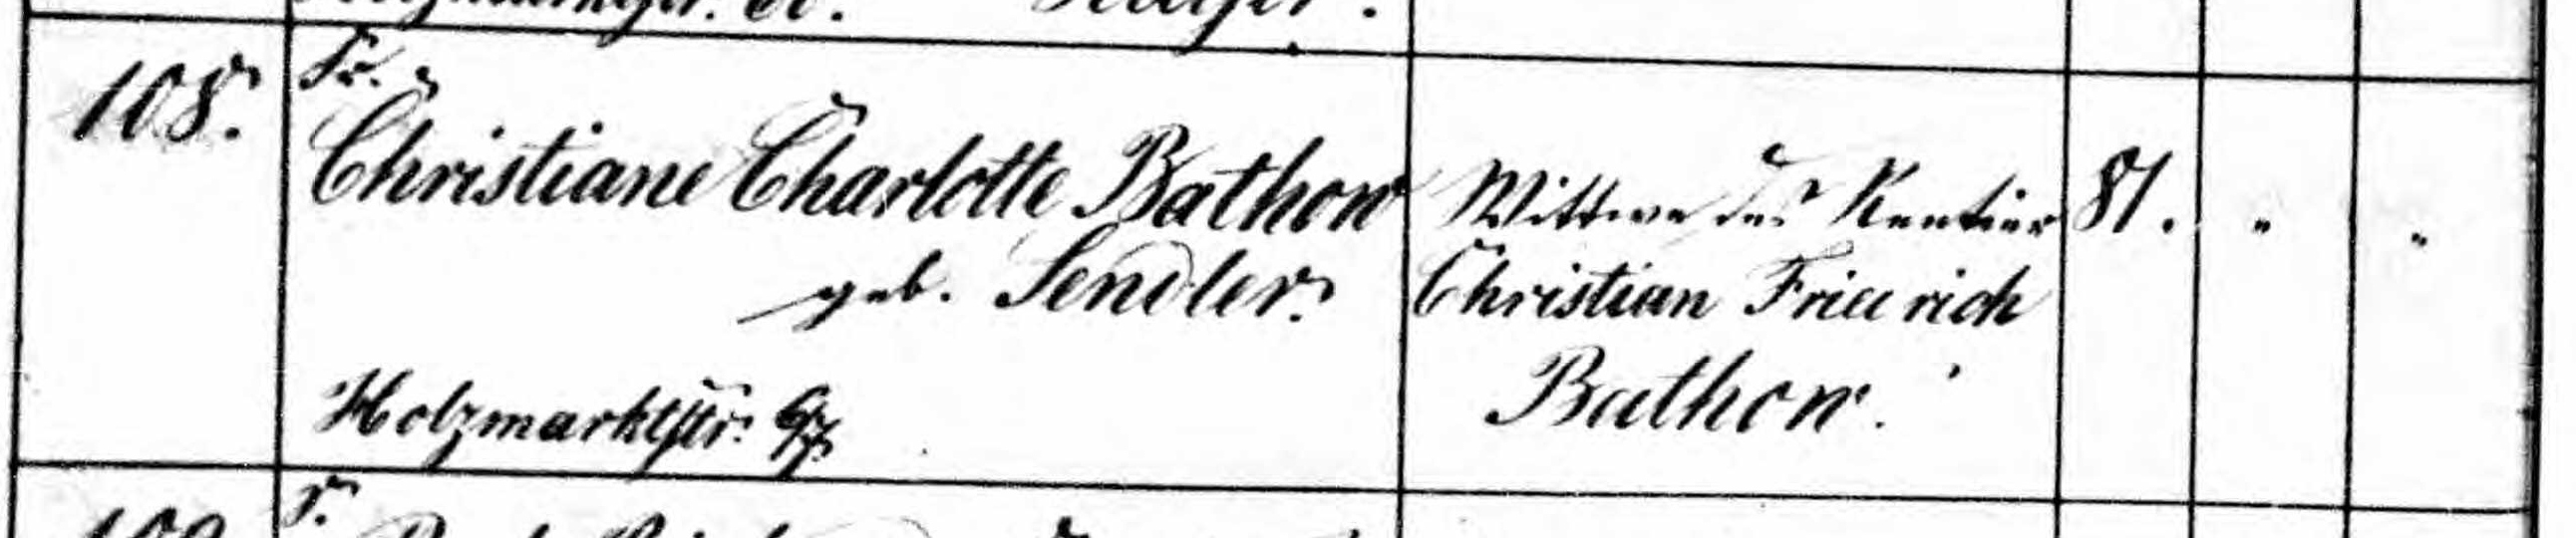 108.
Fr.
Christiane Charlotte Bathow
geb. Sendler.
Holzmarktstr.
Wittwe des Rentier
Christian Friedrich
Bathow.
81. " "